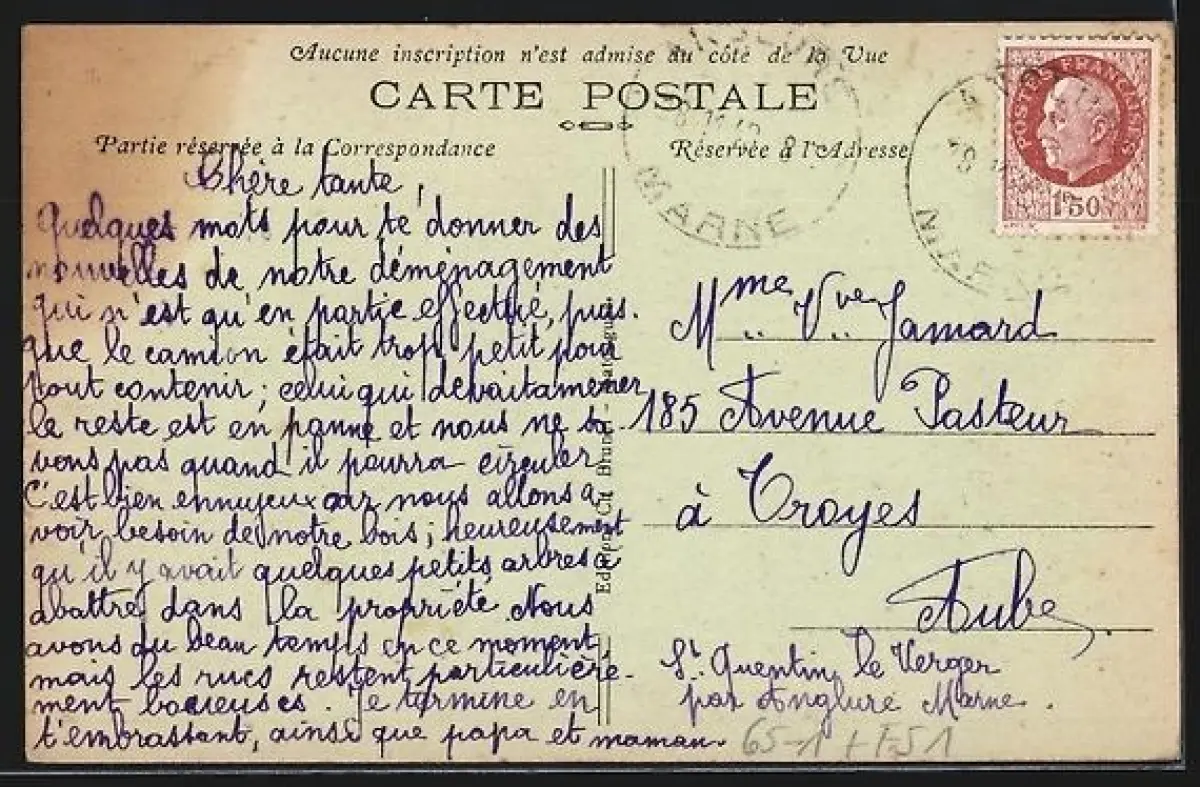 Aucune inscription n'est admise au côté de la Vue
CARTE POSTALE
Partie réservée à la Correspondance
Réservée à l'Adresse
POSTES FRANÇAISES
1F50
MARNE
MARNE
Chère tante,
Quelques mots pour te donner des
nouvelles de notre déménagement
qui n'est qu'en partie effectué, puis-
que le camion était trop petit pour
tout contenir; celui qui devait amener
le reste est en panne et nous ne sa-
vons pas quand il pourra circuler.
C'est bien ennuyeux car nous allons a-
voir besoin de notre bois; heureusement
qu'il y avait quelques petits arbres à
abattre dans la propriété. Nous
avons du beau temps en ce moment,
mais les rues restent particulière-
ment boueuses. Je termine en
t'embrassant, ainsi que papa et maman.
Mme Vve Jamard
185 Avenue Pasteur
à Troyes
Aube
St. Quentin le Verger
par Anglure Marne.
65-1